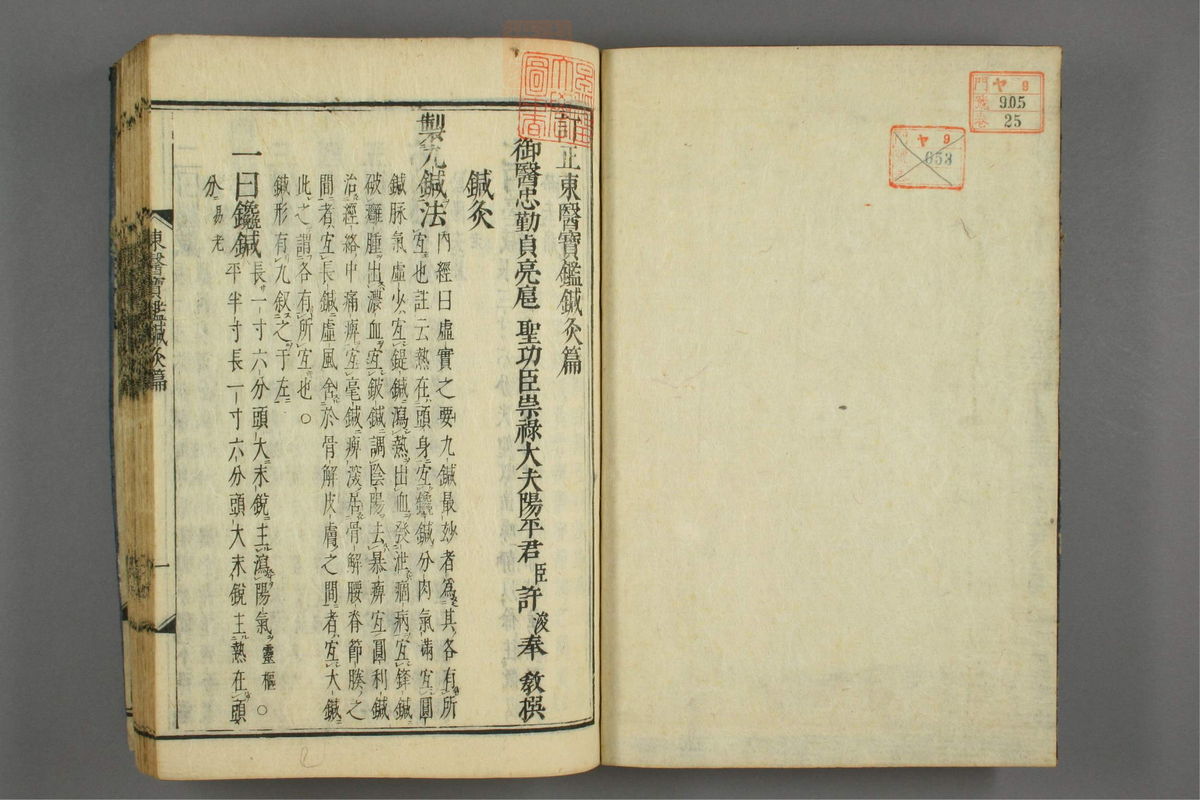 訂正東醫寶鑑鍼灸篇
御醫忠勤貞亮扈聖功臣崇祿大夫陽平君臣許浚奉教撰
鍼灸
製九鍼法
內經曰虛實之要九鍼最妙者爲其各有所
宜也註云熱在頭身宜鑱鍼分肉氣滿宜圓
鍼脉氣虛少宜鍉鍼瀉熱出血發泄痼病宜鋒鍼
破癰腫出濃血宜鈹鍼調陰陽去暴痺宜圓利鍼
治經絡中痛痺宜毫鍼痺深居骨解腰脊節腠之
間者宜長鍼虛風舍於骨解皮膚之間者宜大鍼
此之謂各有所宜也○
鍼形有九叙之于左
一曰鑱鍼
長一寸六分頭大末銳主瀉陽氣靈樞○
平半寸長一寸六分頭大末銳主熱在頭
分易老
東醫寶鑑鍼灸篇
一
門 ヤ 9
號 905
卷 25
ヤ 9
653
圖書